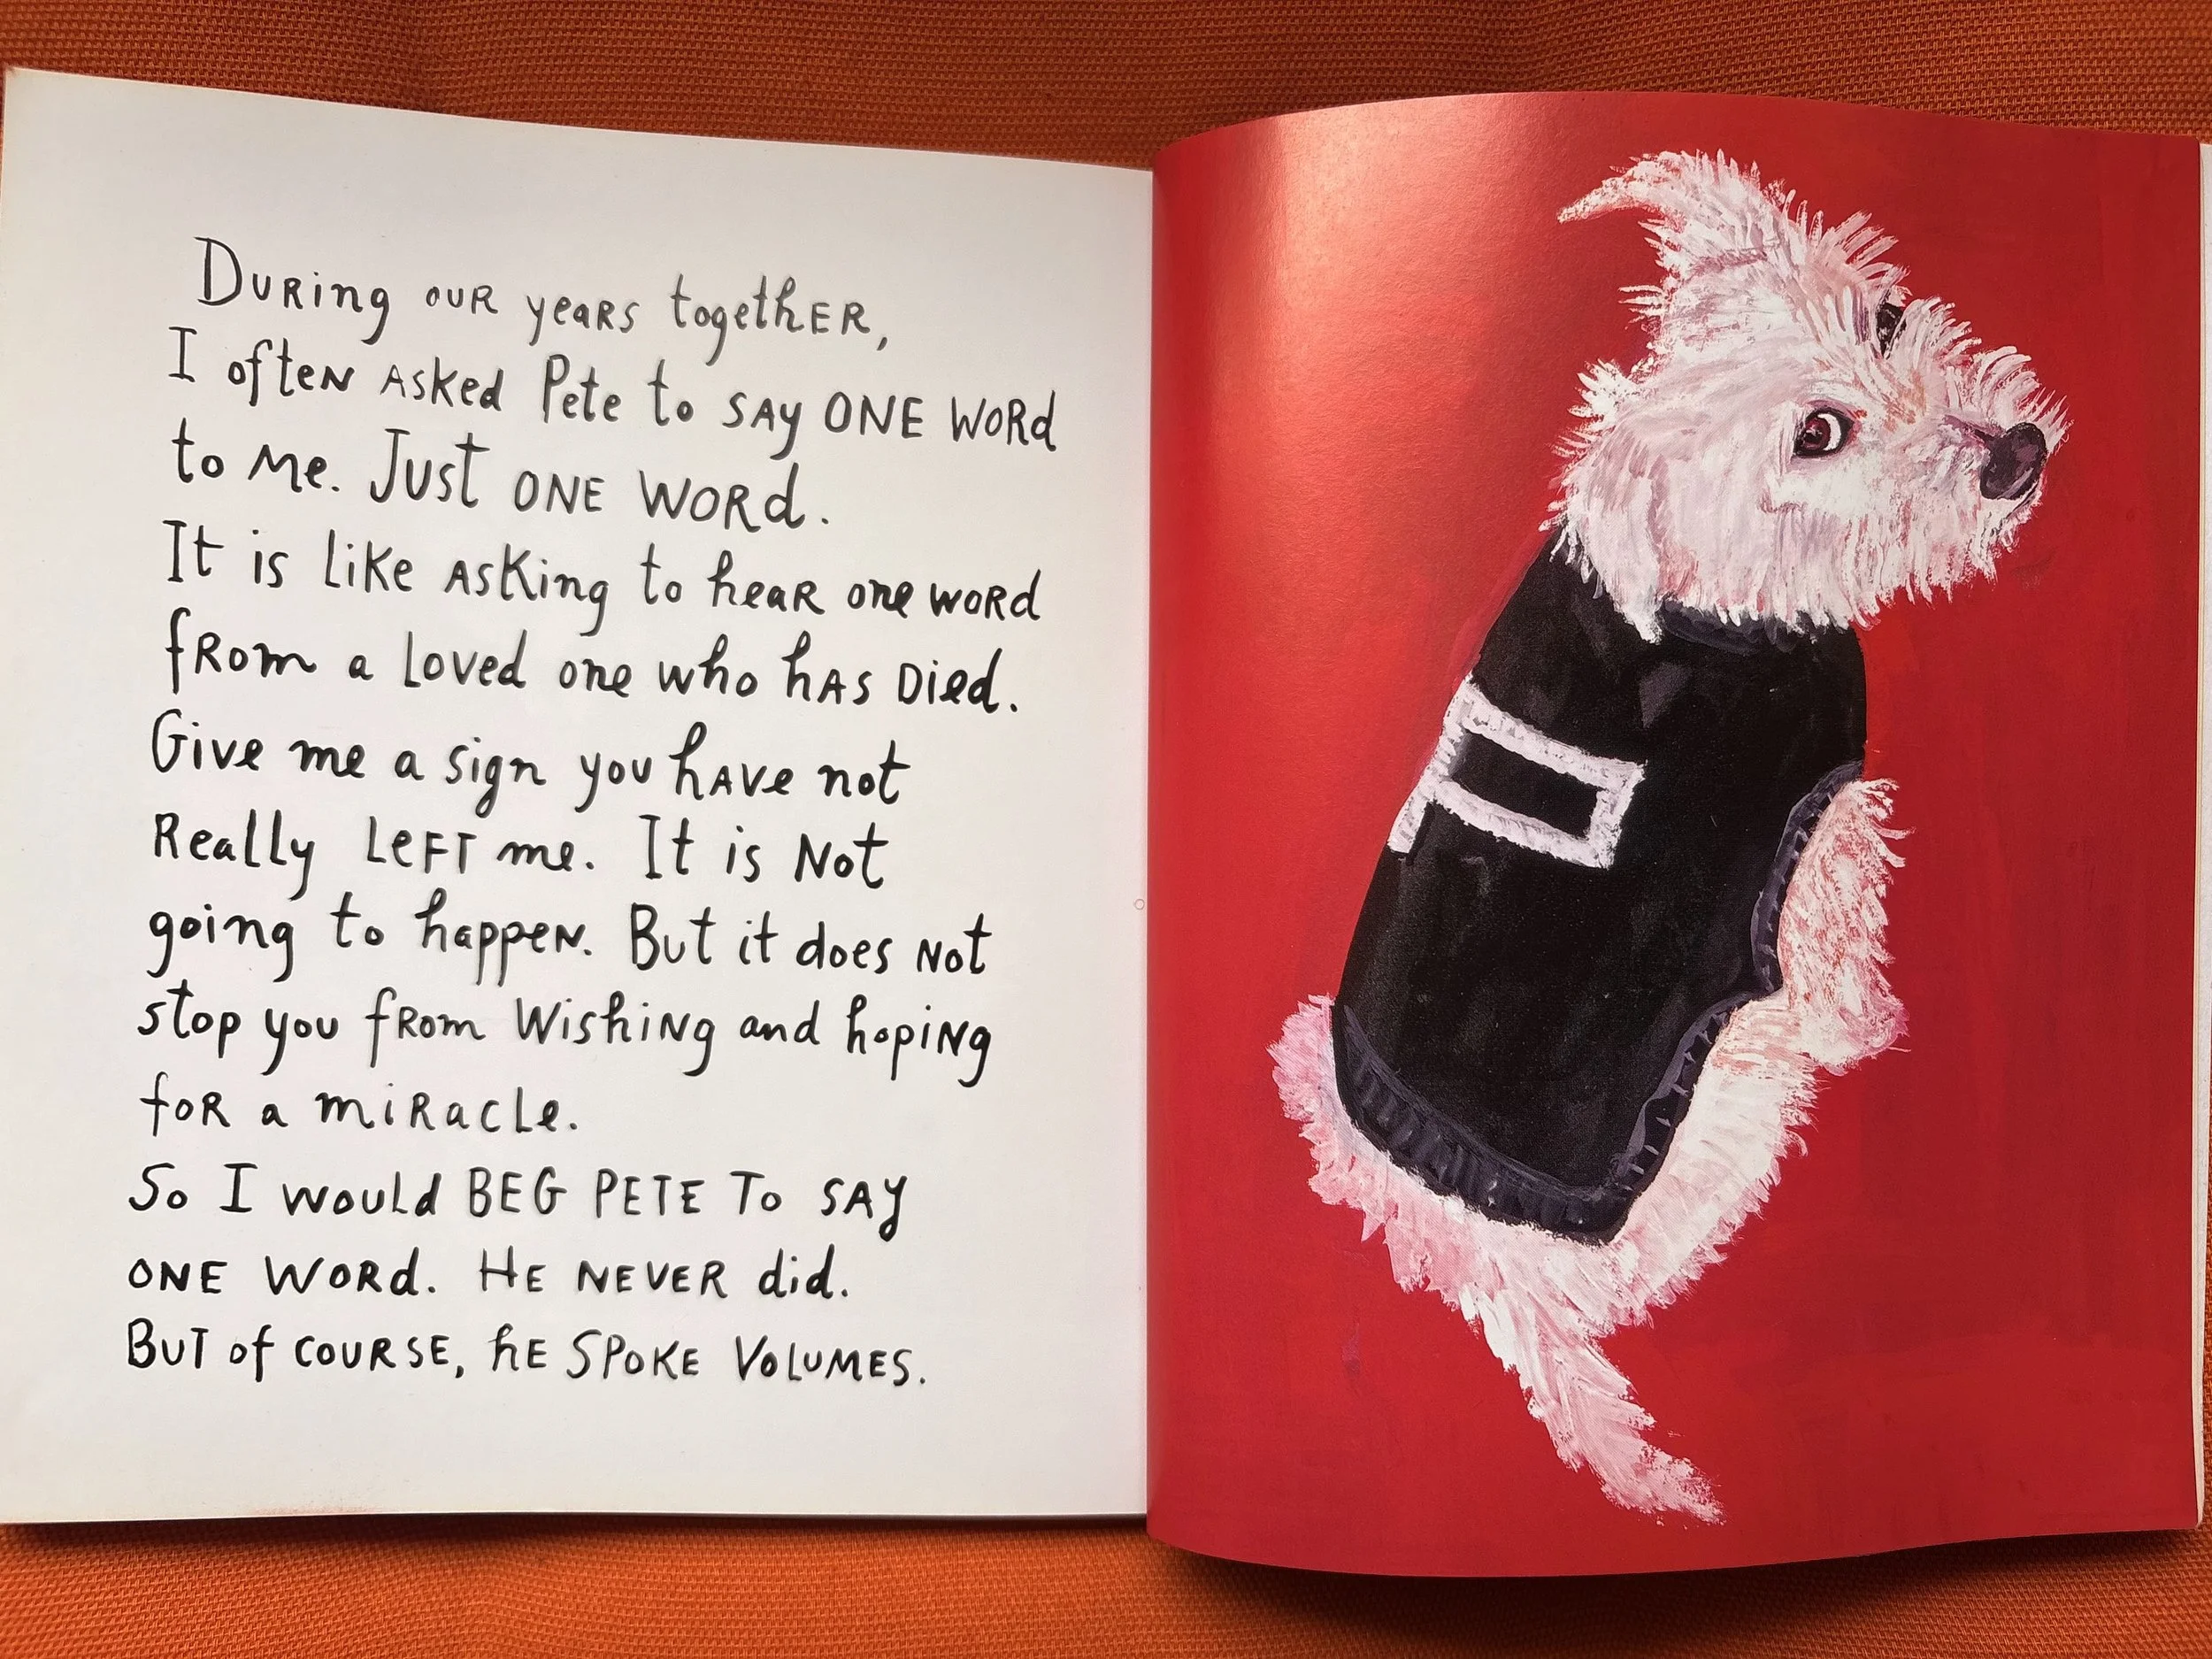 During our years together,
I often asked Pete to say ONE WORd
to me. Just ONE WORd.
It is like asking to hear one word
from a loved one who has died.
Give me a sign you have not
Really LEFT me. It is Not
going to happen. But it does not
stop you from wishing and hoping
for a miracle.
So I would BEG PETE TO SAY
ONE WORd. HE NEVER did.
BUT of COURSE, hE SPOKE VOLUMES.
P